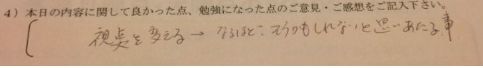 4）本日の内容に関して良かった点、勉強になった点のご意見・ご感想をご記入下さい。
視点を変える→なるほど、そうかもしれないと思いあたる事